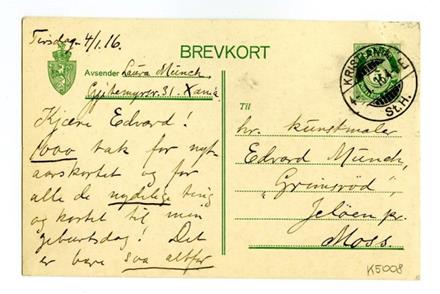 Tirsdag 4/1.16.
BREVKORT
Avsender Laura Munch.
31. Xania
Kjære Edvard!
1000 tak for nyt-
aarskortet og for
alle de nydelige ting
og kortet til min
geburtsdag! Det
er bare saa altfor
KRISTIANIA
St.H.
Til
hr. kunstmaler
Edvard Munch,
"Grimsrød",
Jeløen pr.
Moss.
K5008